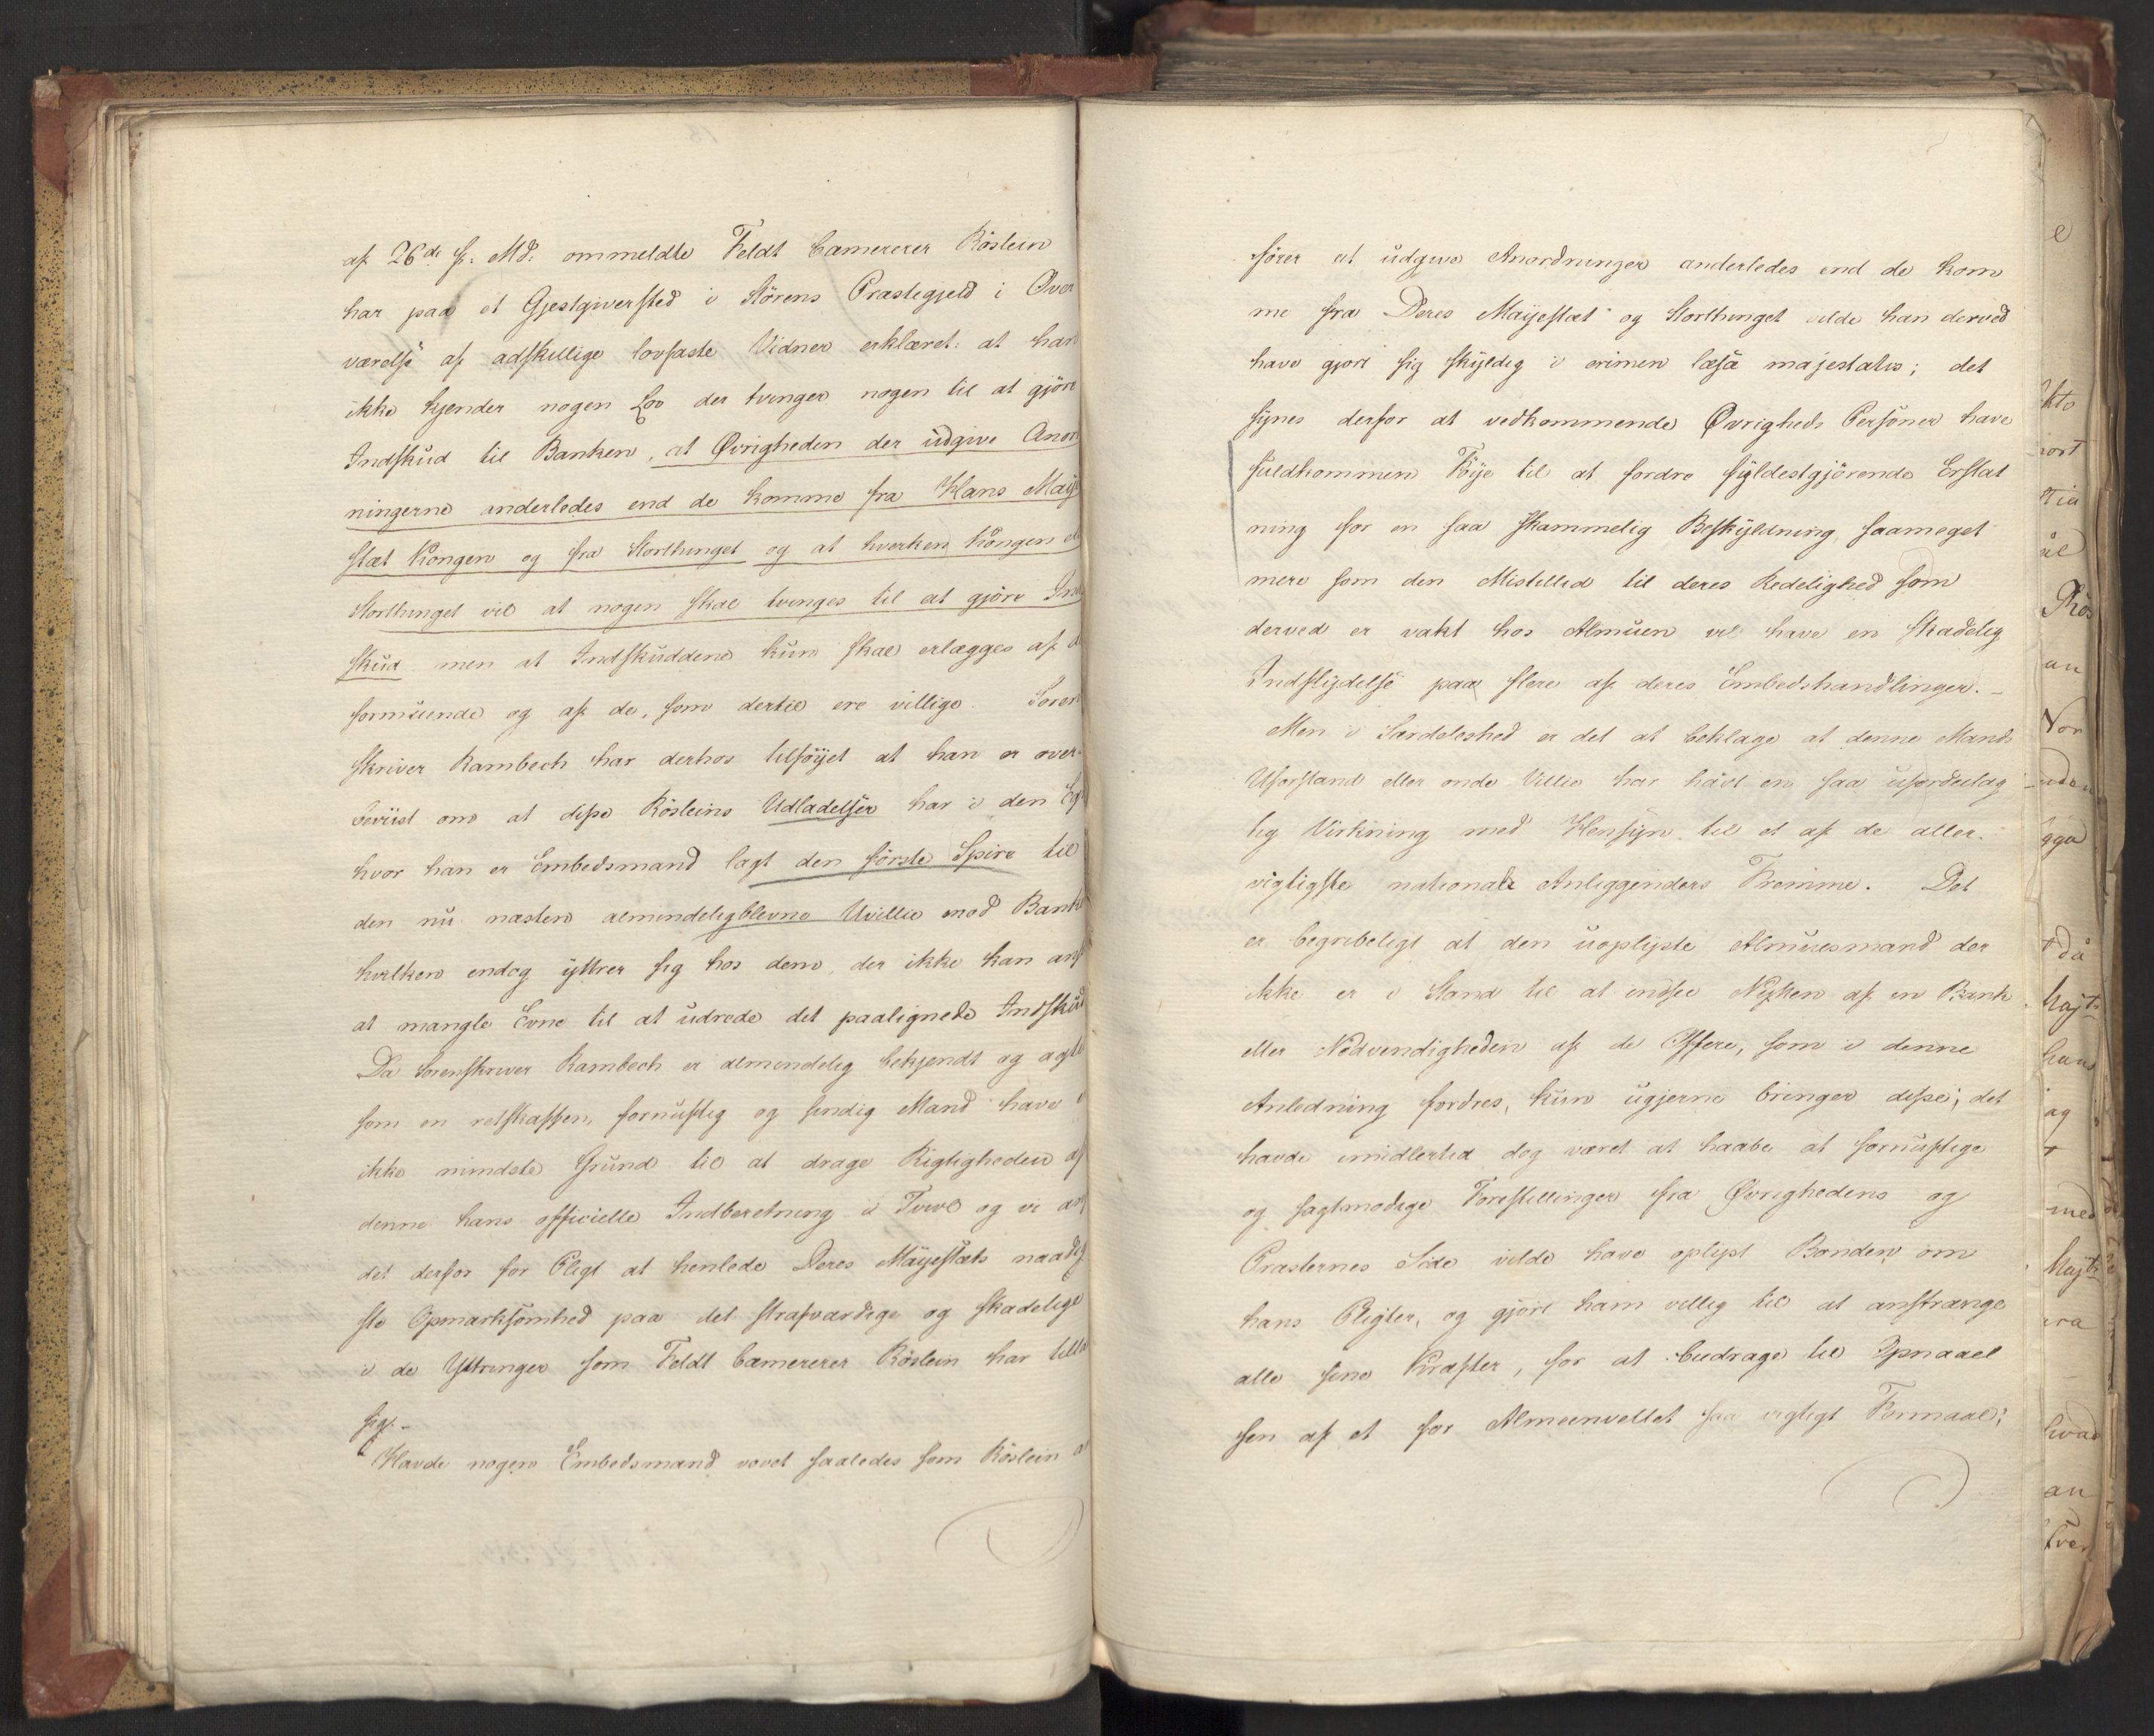 af 26de f: Md: ommeldte Feldt Camererer Röslein
har paa et Gjestgiversted i Störens Præstegjeld i Over
værelse af adskillige lovfaste Vidner erklæret: at han
ikke kjender nogen Lov der tvinger nogen til at gjöre
Indskud til Banken, at Øvrigheden der udgive Anord
ningerne anderledes end de komme fra Hans Maye
stæt Kongen og fra Storthinget og at hverken Kongen el
Storthinget vil at nogen skal tvinges til at gjöre Ind
skud men at Indskuddene kun skal erlægges af de
formuende og af de, som dertil ere villige. Soren
skriver Rambech har derhos tilföyet at han er over-
beviist om at disse Rösleins Udladelser har i den Egn
hvor han er Embedsmand lagt den förste Spire til
den nu næsten almindeligblevne Uvillie mod Banken
hvilken endog yttrer sig hos dem, der ikke kan ansees
at mangle Evne til at udrede det paalignede Indskud
Da Sorenskriver Rambech er almindelig bekjendt og agtet
som en retskaffen, fornuftig og sindig Mand have vi
ikke mindste Grund til at drage Rigtigheden af
denne hans officielle Indberetning i Tvivl og vi ansee
det derfor for Pligt at henlede Deres Mayestæts naadig
ste Opmærksomhed paa det strafværdige og skadelige
i de Yttringer som Feldt Camererer Röslein har tilladt
sig. -
Havde nogen Embedsmand vovet saaledes som Röslein an
förer at udgive Anordninger anderledes end de kom
me fra Deres Mayestæt og Storthinget vilde han derved
have gjort sig skyldig i crimen læsæ majestatis; det
synes derfor at vedkommende Øvrigheds Personer have
fuldkommen Föye til at fordre fyldestgjörende Erstat
ning for en saa skammelig Beskyldning, saameget
mere som den Mistillid til deres Redelighed som
derved er vakt hos Almuen vil have en skadelig
Indflydelse paa flere af deres Embedshandlinger. -
Men i Særdeleshed er det at beklage at denne Mands
Uforstand eller onde Villie har havt en saa ufordeelag
tig Virkning med Hensyn til et af de aller-
vigtigste nationale Anliggenders Fremme. Det
er begribeligt at den uoplyste Almuesmand der
ikke er i Stand til at indsee Nytten af en Bank
eller Nödvendigheden af de Offere, som i denne
Anledning fordres, kun ugjerne bringer disse; det
havde imidlertid dog været at haabe at fornuftige
og sagtmodige Forestillinger fra Øvrighedens og
Præsternes Side vilde have oplyst Bonden om
hans Pligter, og gjort ham villig til at anstrænge
alle sine Kræfter, for at bidrage til Opnaael
sen af et for Almeenvellet saa vigtigt Formaal;